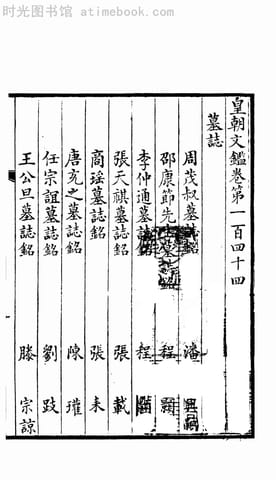 时光图书馆 · www.atimebook.com
皇朝文鑑卷第一百四十四
墓誌
周茂叔墓誌銘 潘興嗣
邵康節先生墓誌銘 程顥
李仲通墓誌銘 程顥
張天祺墓誌銘 張載
商瑶墓誌銘 張耒
唐充之墓誌銘 陳瓘
任宗誼墓誌銘 劉跂
王公旦墓誌銘 滕宗諒